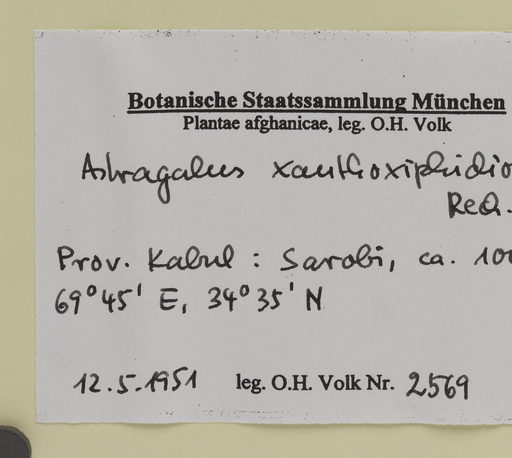 Botanische Staatssammlung München
Plantae afghanicae, leg. O.H. Volk
Astragalus xanthoxiphidio
Rech.
Prov. Kabul : Sarobi, ca. 100
69°45' E, 34°35' N
12.5.1951 leg. O.H. Volk Nr. 2569